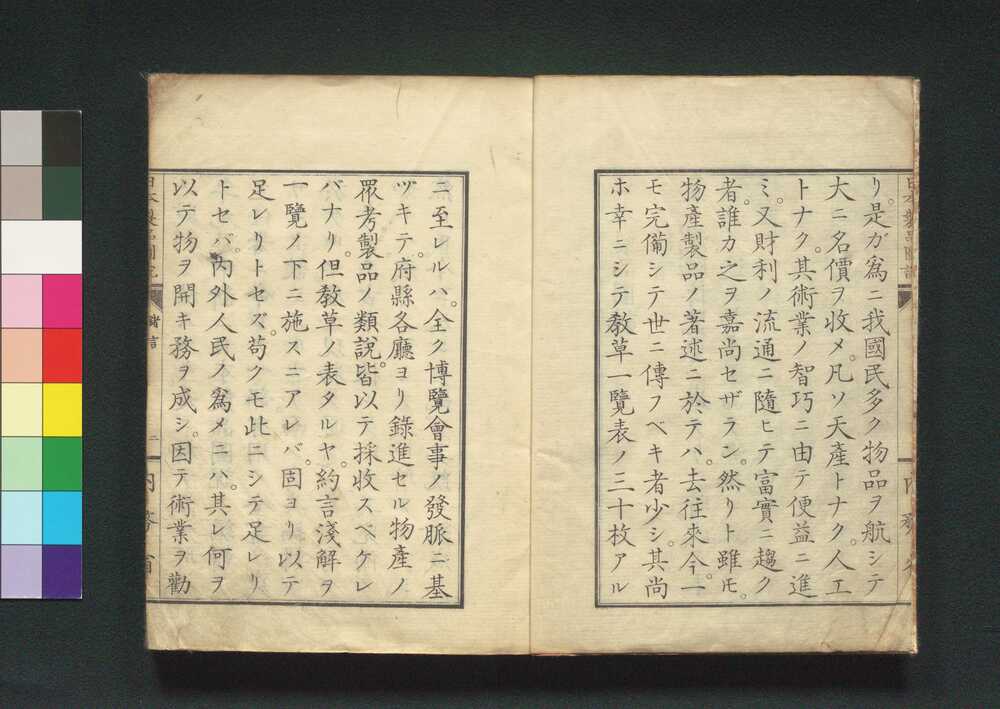 リ。是ガ爲ニ我國民多ク物品ヲ航シテ
大ニ名價ヲ收メ。凡ソ天產トナク。人工
トナク。其術業ノ智巧ニ由テ便益ニ進
ミ。又財利ノ流通ニ隨ヒテ富實ニ趨ク
者。誰カ之ヲ嘉尚セザラン。然リト雖モ。
物產製品ノ著述ニ於テハ。去往來今。一
モ完備シテ世ニ傳フベキ者少シ。其尚
ホ幸ニシテ教草一覽表ノ三十枚アル
ニ至レルハ。全ク博覽會事ノ發脈ニ基
ヅキテ。府縣各廳ヨリ錄進セル物產ノ
衆考製品ノ類說。皆以テ採收スベケレ
バナリ。但教草ノ表タルヤ。約言淺解ヲ
一覽ノ下ニ施スニアレバ。固ヨリ以テ
足レリトセズ。苟クモ此ニシテ足レリ
トセバ。內外人民ノ爲メニハ。其レ何ヲ
以テ物ヲ開キ務ヲ成シ。因テ術業ヲ勸
緒言
二